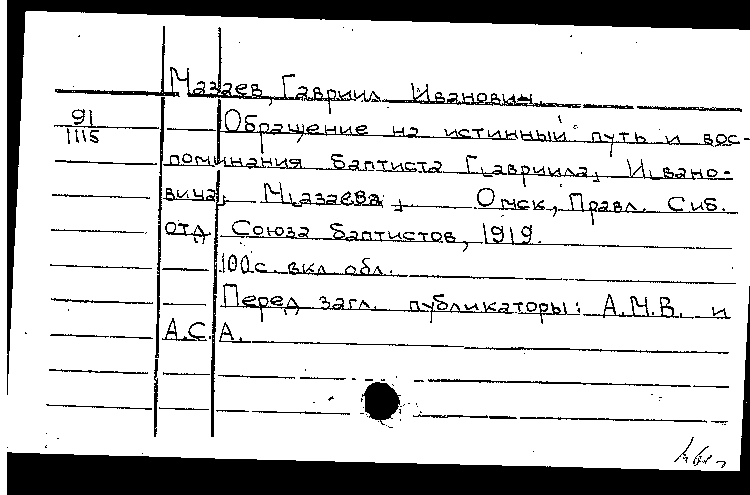 Мазаев, Гавриил Иванович.
91
1115
Обращение на истинный путь и вос-
поминания баптиста Г[авриила] И[вано-
вича] М[азаева]. Омск, Правл. Сиб.
отд Союза баптистов, 1919.
100с. вкл обл.
Перед загл. публикаторы: А.М.В. и
А.С.А.